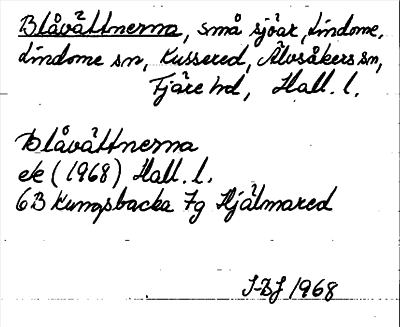 Blåvättnerna, små sjöar, Lindome,
Lindome sn, Kussered, Älvsåkers sn,
Fjäre hd, Hall. l.
Blåvättnerna
ek (1968) Hall. l.
6B Kungsbacka 7g Hjälmared
1968